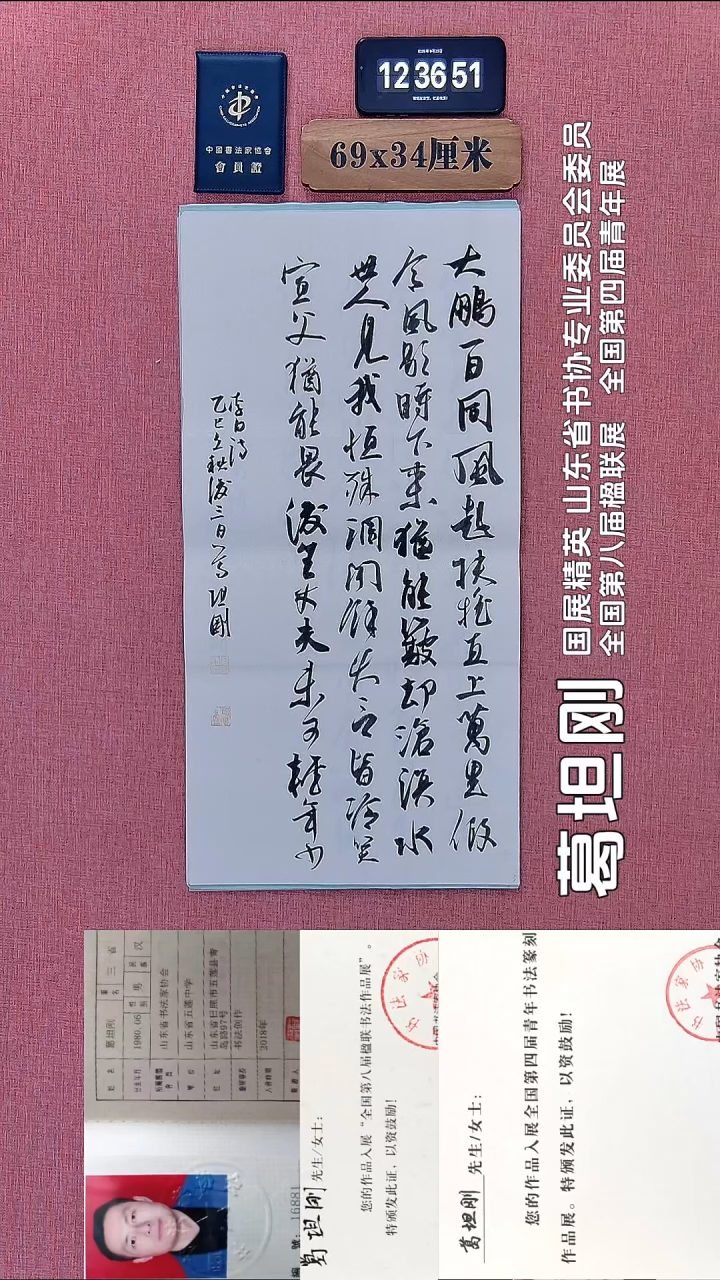 12 36 51
中國書法家協會
會員證
69x34厘米
大鵬一日同風起扶摇直上萬里假
令風歇時下来猶能簸却滄溟水
世人見我恒殊調聞餘大言皆冷笑
宣父猶能畏後生丈夫未可輕年少
李白詩
乙巳立秋後三日葛坦剛
国展精英 山东省书协专业委员会委员
全国第八届楹联展 全国第四届青年展
葛坦刚
姓名 葛坦刚
1980.06 性别 男 民族 汉
山东省书法家协会
山东省五莲中学
山东省日照市五莲县青
岛路97号
书法创作
2018年
編號：16881
葛坦刚 先生/女士：
您的作品入展“全国第八届楹联书法作品展”。
特颁发此证，以资鼓励！
葛坦刚 先生/女士：
您的作品入展全国第四届青年书法篆刻
作品展。特颁发此证，以资鼓励！